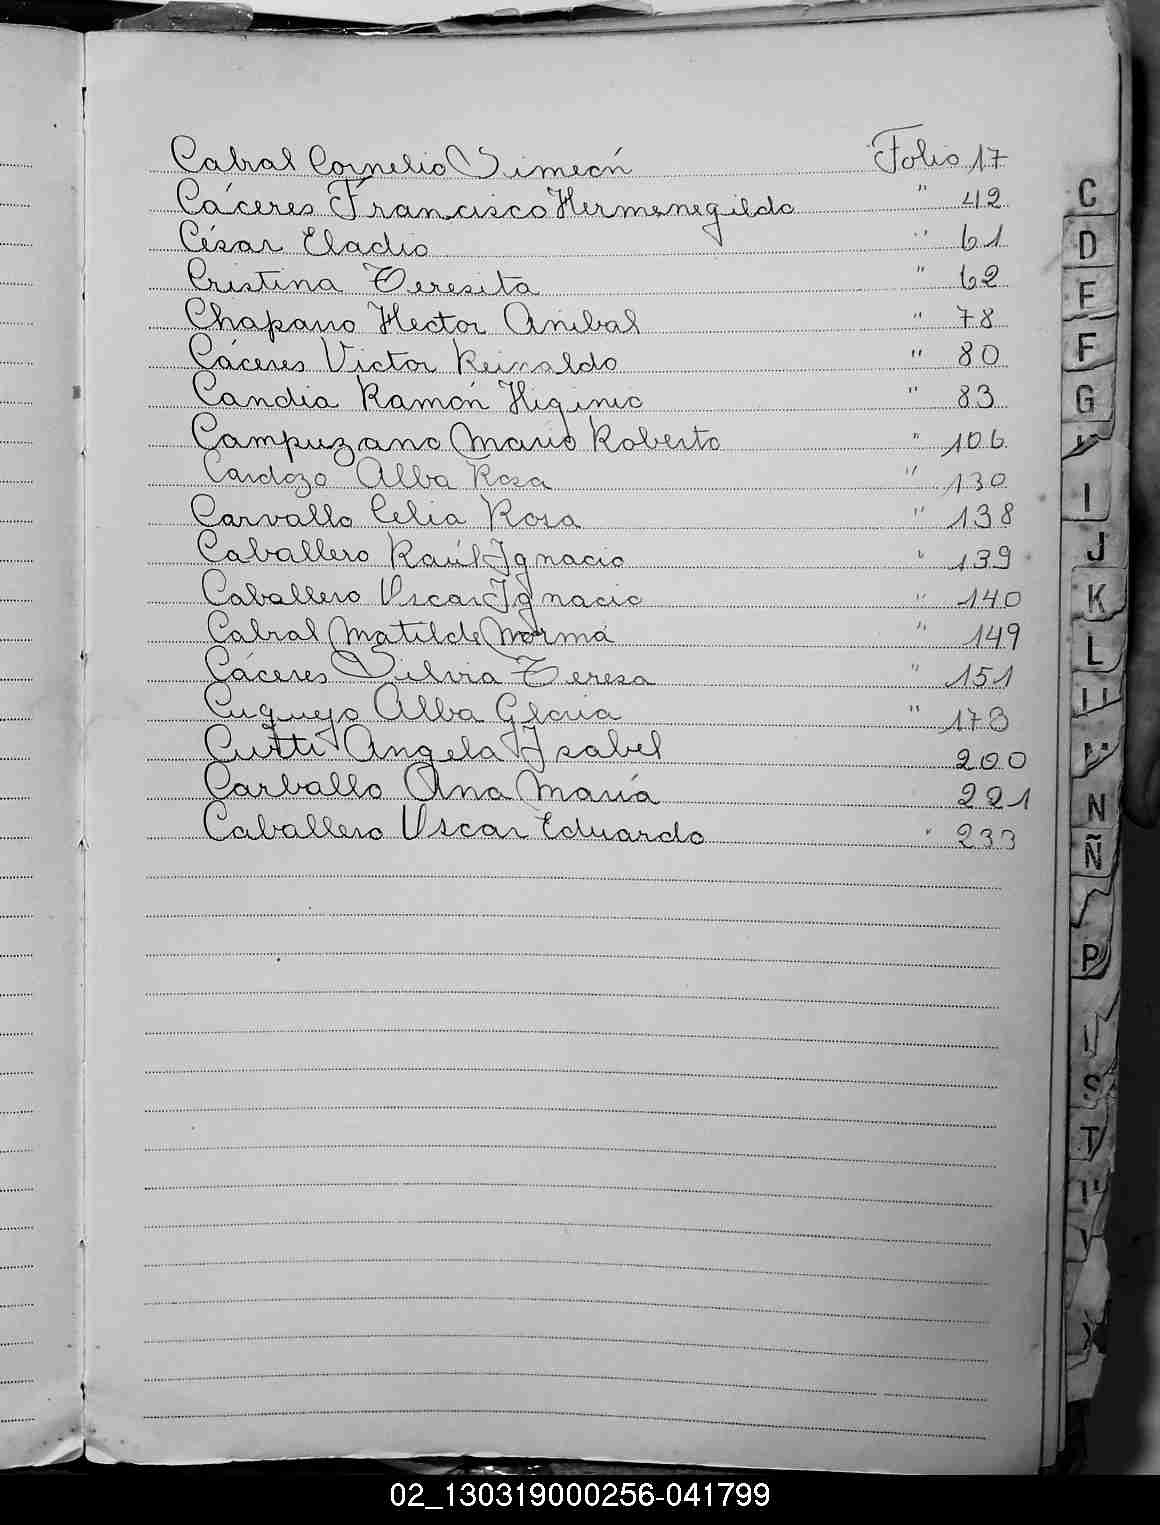 Cabral Cornelio Simeón Folio 17
Cáceres Francisco Hermenegildo " 42
César Eladio " 61
Cristina Teresita " 62
Chaparro Hector Anibal " 78
Cáceres Victor Reinaldo " 80
Candia Ramón Higinio " 83
Campuzano Mario Roberto " 106
Cardozo Alba Rosa " 130
Carvallo Celia Rosa " 138
Caballero Raúl Ignacio " 139
Caballero Oscar Ignacio " 140
Cabral Matilde Norma " 149
Cáceres Silvia Teresa " 151
Cuquejo Alba Gloria " 173
Cutti Angela Isabel 200
Carballo Ana María 221
Caballero Oscar Eduardo " 233
C
D
E
F
G
I
J
K
L
M
N
Ñ
P
S
T
02_130319000256-041799